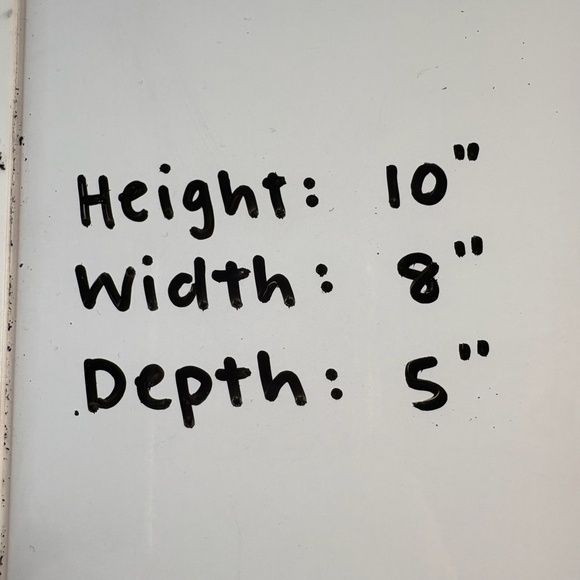 Height: 10"
Width: 8"
Depth: 5"